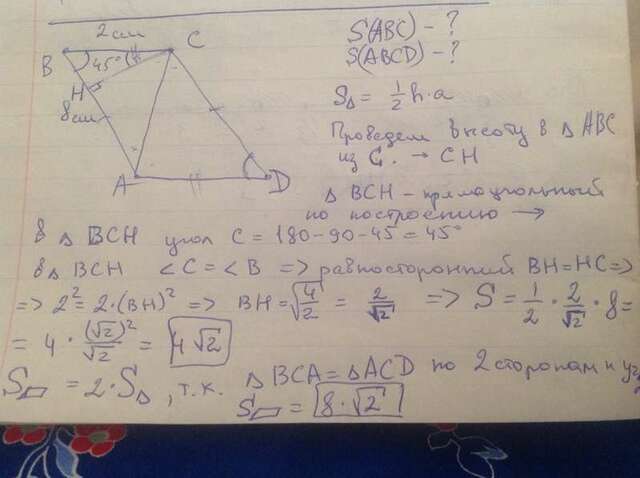 2см
B
C
45°
H
8см
A
D
S(ABC) - ?
S(ABCD) - ?
S△ = 1/2 h·a
Проведем высоту в △ ABC
из C. → CH
△ BCH - прямоугольный
по построению →
в △ BCH угол C = 180-90-45=45°
в △ BCH <C = <B => равносторонний BH=HC=>
=> 2² = 2·(BH)² => BH=√(4/2) = 2/√2 => S = 1/2 · 2/√2 · 8 =
= 4 · (√2)²/√2 = 4√2
S▱ = 2·S△, т.к. △ BCA = △ACD по 2 сторонам и уг
S▱ = 8·√2